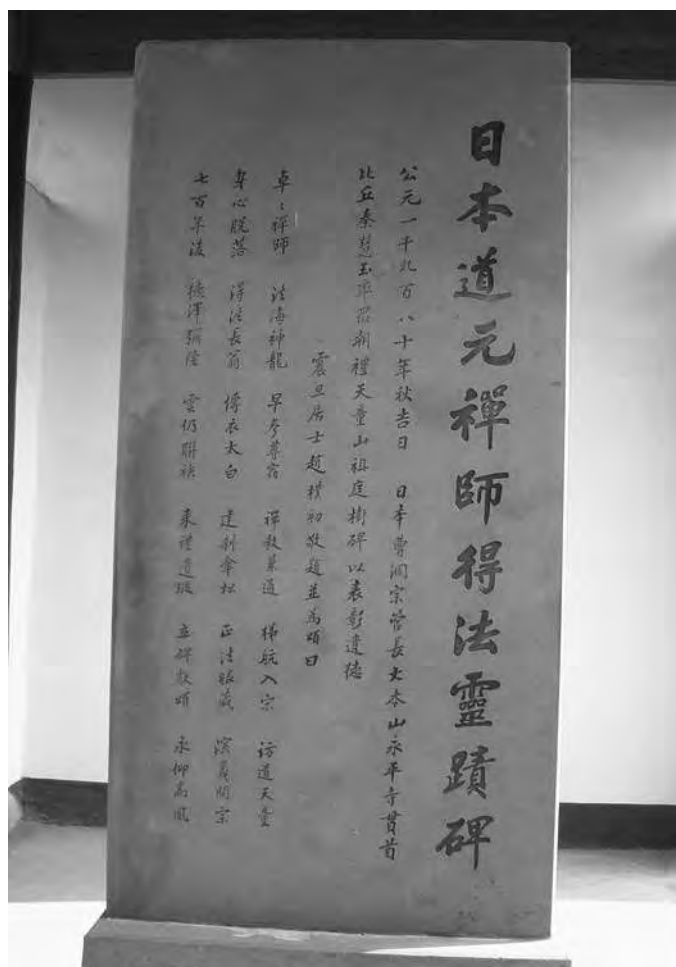 日本道元禪師得法靈蹟碑
公元一千九百八十年秋吉日 日本曹洞宗管長大本山永平寺貫首
比丘秦慧玉率眾朝禮天童山祖庭樹碑以表彰遺德
震旦居士趙樸初敬題並為頌曰
卓々禪師 法海神龍 早參尊宿 禪教兼通 梯航入宋 訪道天童
身心脫落 得法長翁 傳衣太白 建剎傘松 正法眼藏 演義開宗
七百年後 德澤彌隆 雲仍聯袂 來禮遺蹤 立碑獻頌 永仰高風